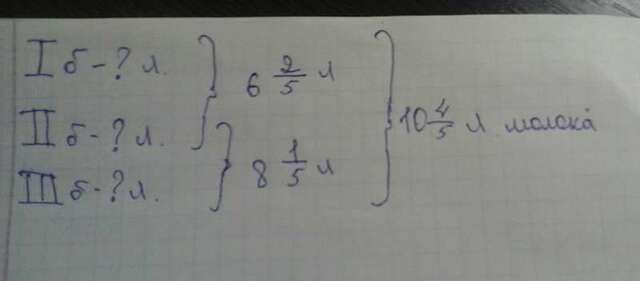 I б - ? л.
6 2/5 л
II б - ? л.
10 4/5 л молока
8 1/5 л
III б - ? л.